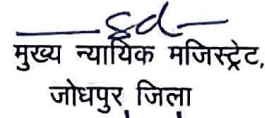 Sd-
मुख्य न्यायिक मजिस्ट्रेट,
जोधपुर जिला